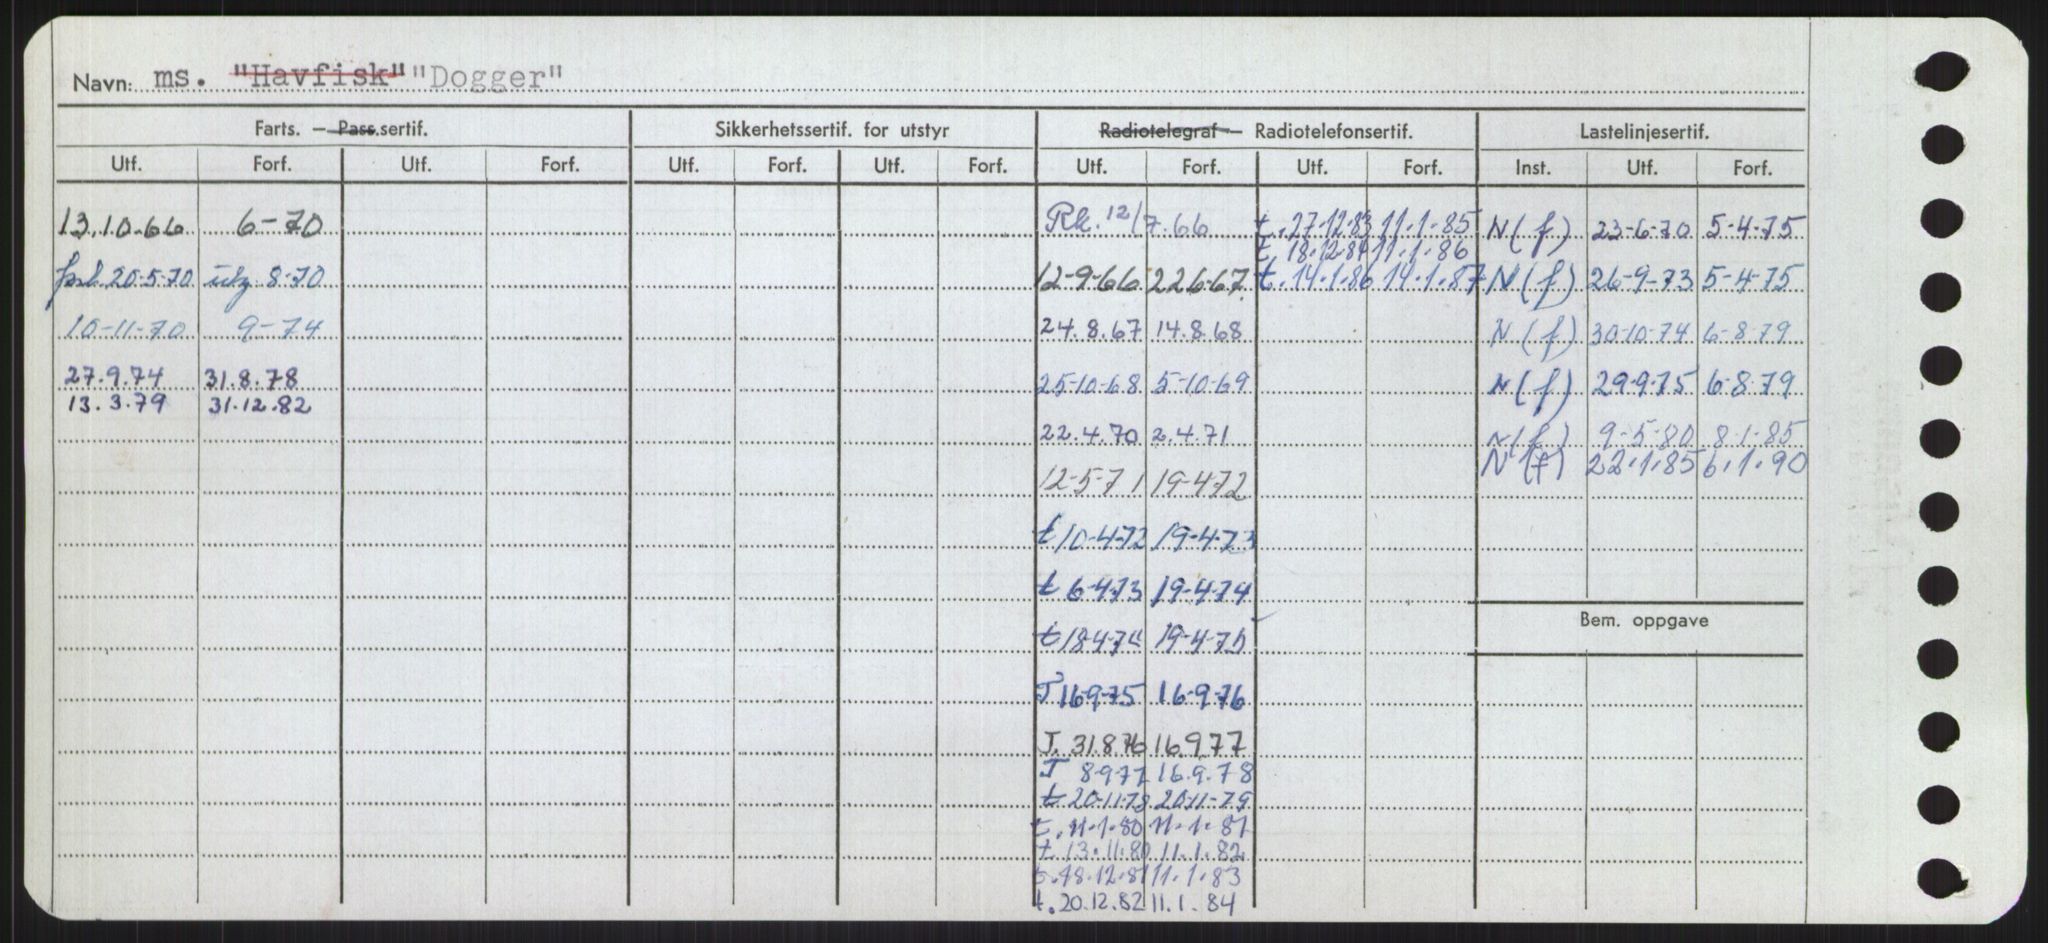 Navn: ms. "Havfisk" "Dogger"
Farts. — Pass.sertif. Sikkerhetssertif. for utstyr Radiotelegraf — Radiotelefonsertif. Lastelinjesertif.
Utf. Forf. Utf. Forf. Utf. Forf. Utf. Forf. Utf. Forf. Utf. Forf. Inst. Utf. Forf.
13.10.66 6-70 Rk. 12/7.66 t. 27.12.83 11.1.85 N(f) 23-6-70 5-4-75
t 18.12.84 11.1.86
20-5-70 8-70 12-9-66 22667 t. 14.1.86 14.1.87 N(f) 26-9-73 5-4-75
10-11-70 9-74 24.8.67 14.8.68 N(f) 30-10-74 6-8-79
27.9.74 31.8.78 25-10-68 5-10-69 N(f) 29-9-75 6-8-79
13.3.79 31.12.82
22.4.70 2.4.71 N(f) 9-5-80 8-1-85
N(f) 22.1.85 6.1.90
12-5-71 19-4-72
t 10-4-72 19-4-73
t 6-4-73 19-4-74
Bem. oppgave
t 18-4-74 19-4-75
T 16-9-75 16-9-76
T. 31.8.76 16.9.77
T 8-9-77 16.9.78
t 20-11-78 20-11-79
t. 11.1.80 11.1.81
t 13.11.80 11.1.82
t. 18.12.81 11.1.83
t. 20.12.82 11.1.84